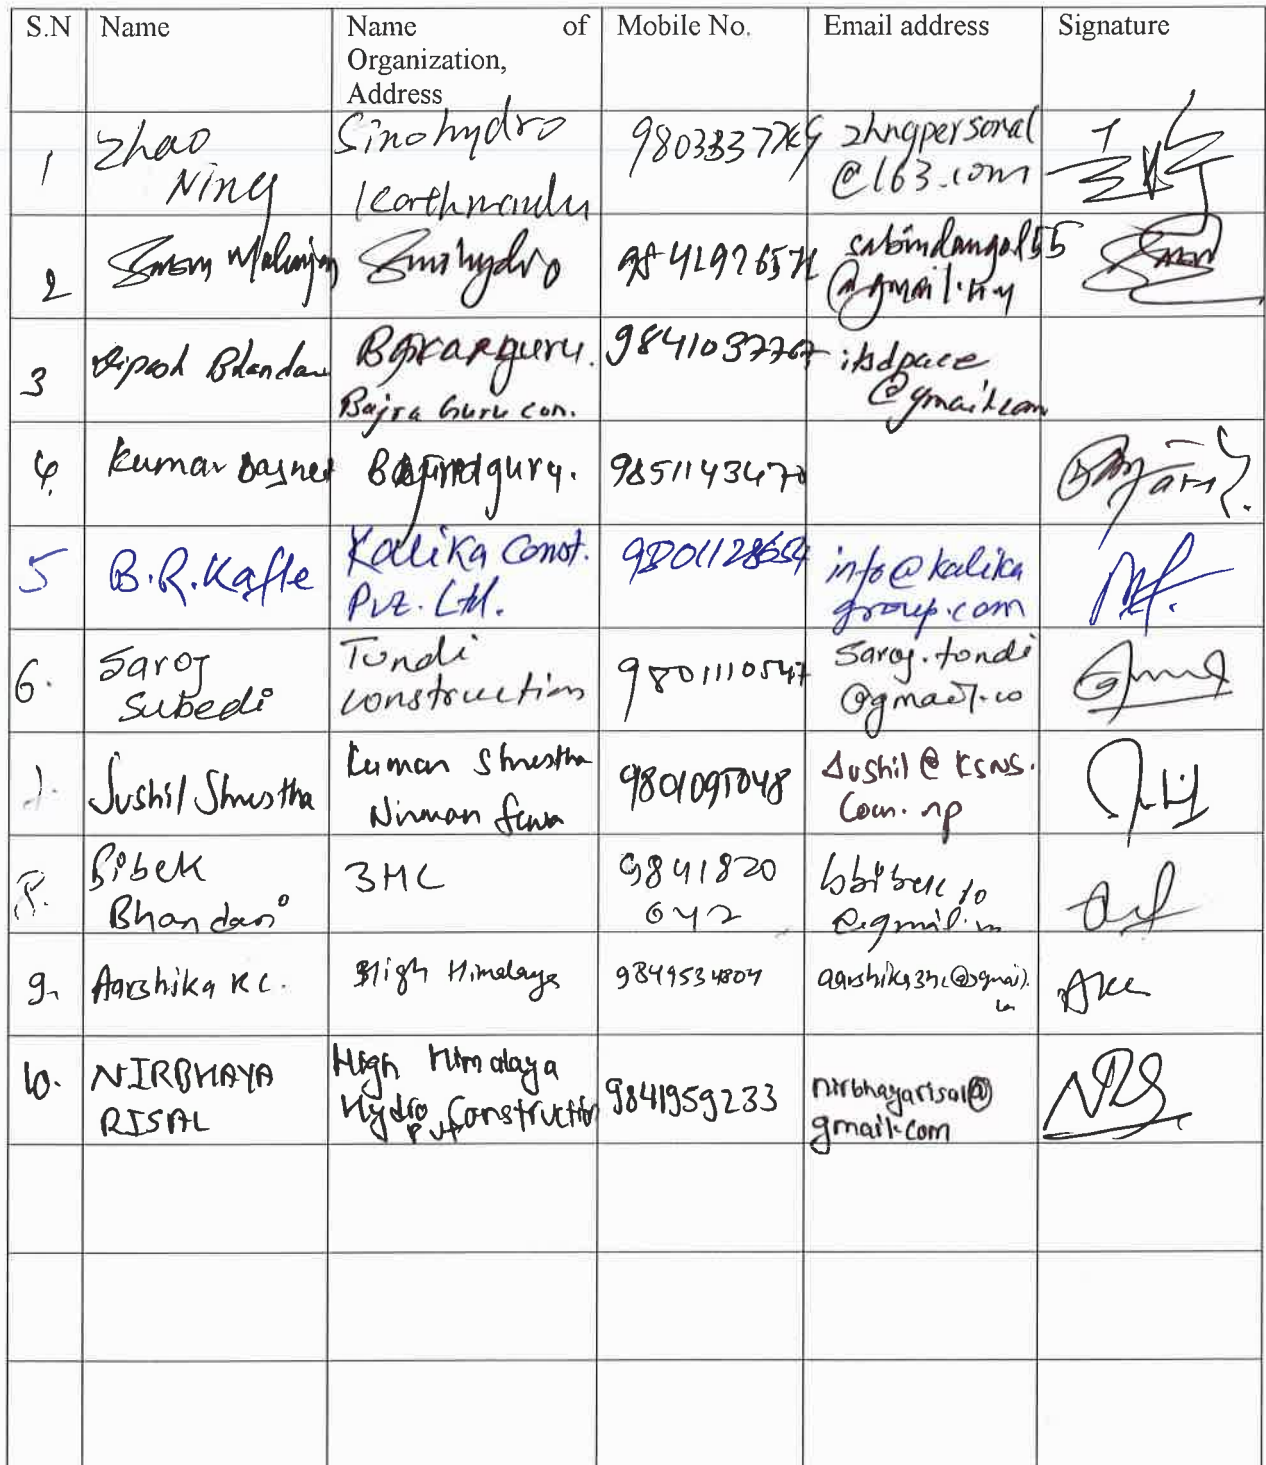 S.N Name Name of Organization, Address Mobile No. Email address Signature
1 Zhao Ning Sinohydro Kathmandu zhngpersonal @163.com
2 Maharjan Sinohydro sabindangol55 @gmail.
3 Bhandari Bajra Guru con. @gmail.com
4. Kumar Basnet 9851143470
5 B.R.Kafle Kalika Const. Pvt. Ltd. 9801128654 info@kalika group.com
6. Saroj Subedi Tundi construction 9801110547 Saroj.tundi @gmail.co
7. Sushil Shrestha Kuman Shrestha Nirman Sewa 9801095048 Sushil@KSNS. Com.np
8. Bibek Bhandari 3HC 9841820 642 bbibek10 @gmail.
9. Aarshika K.C. High Himalaya 9849534804
10. NIRBHAYA RISAL High Himalaya Hydro Construction Pvt 9841959233 nirbhayarisal@ gmail.com